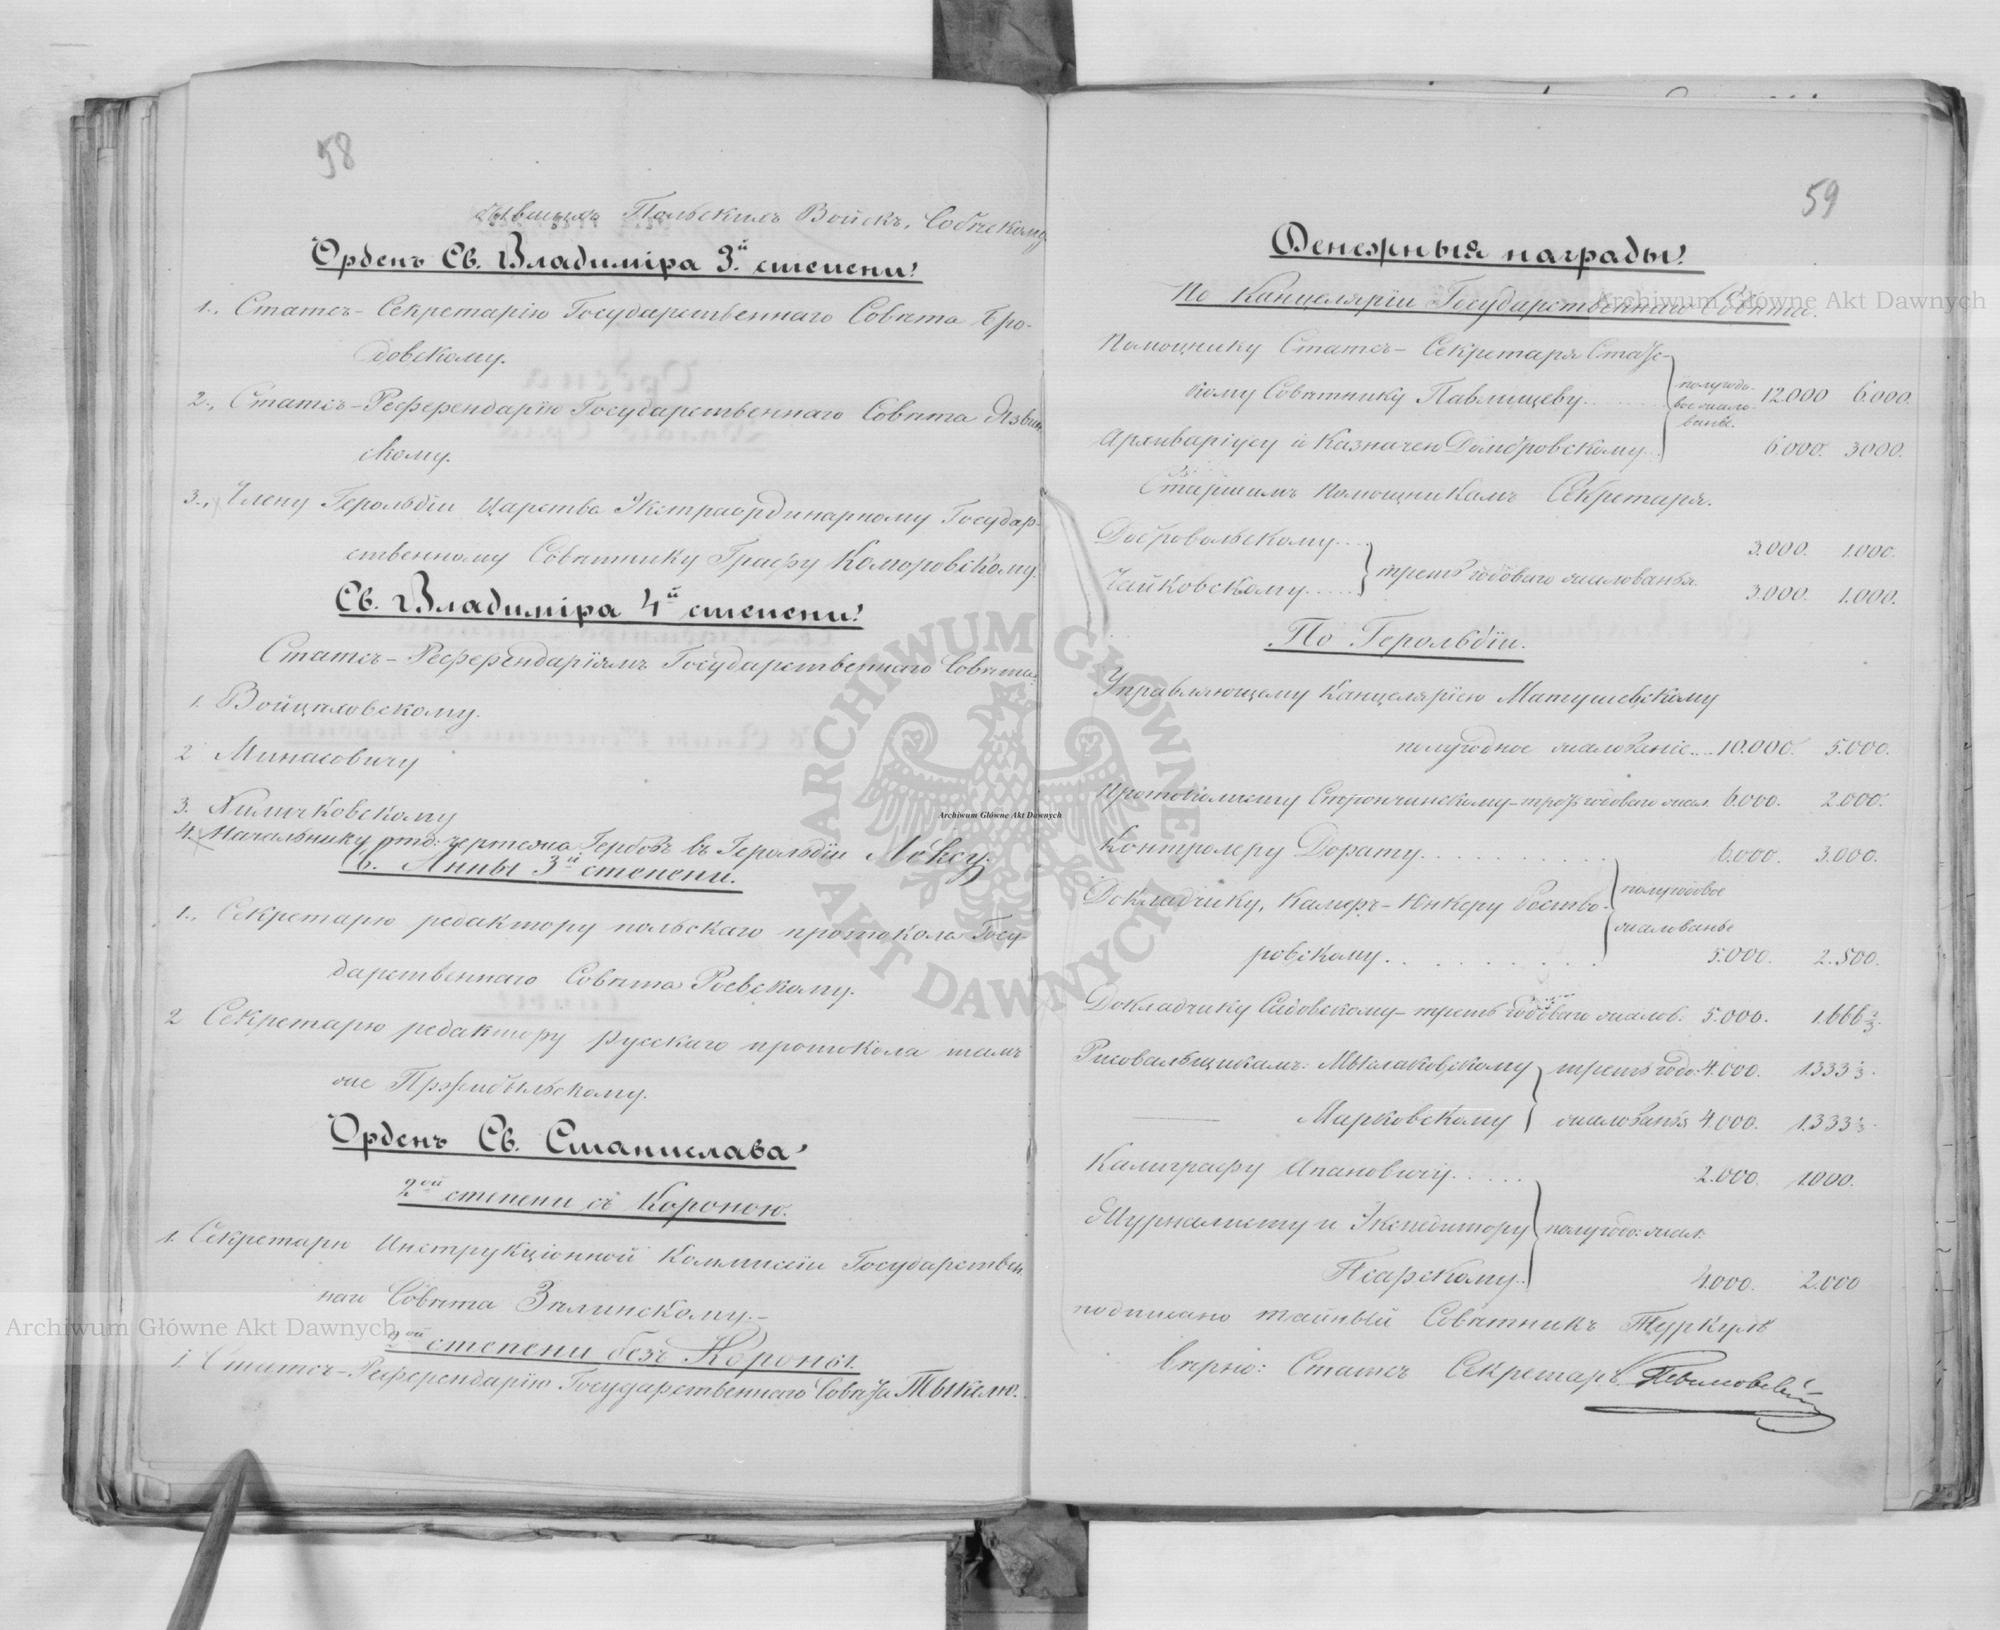 58
бывшихъ Польскихъ Войскъ, Собѣскому
Орденъ Св. Владиміра 3.й степени:
1., Статсъ-Секретарю Государственнаго Совѣта Бро-
довскому.
2., Статсъ-Референдарію Государственнаго Совѣта
скому.
3., Члену Герольдіи Царства Экстраординарному Государ-
ственному Совѣтнику Графу Коморовскому.
Св. Владиміра 4й степени:
Статсъ-Референдаріямъ Государственнаго Совѣта:
1. Войцѣховскому.
2 Минасовичу
3. Хиличковскому
4. Начальнику отд: чертежа Гербовъ въ Герольдіи
Св. Анны 3й степени.
1., Секретарю редактору польскаго протокола Госу-
дарственнаго Совѣта Роевскому.
2 Секретарю редактору русскаго протокола тамъ
же Пржибыльскому.
Орденъ Св. Станислава
2ой степени съ Короною.
1. Секретарю Инструкціонной Коммисіи Государствен
наго Совѣта Зѣлинскому.-
2ой степени безъ Короны.
1. Статсъ-Референдарію Государственнаго Совѣта Тыкелю.
59
Денежныя награды:
По Канцеляріи Государственнаго Совѣта.
Помощнику Статсъ-Секретаря Статс-
кому Совѣтнику Павлищеву полугодо-
вое жало-
ванье. 12.000 6.000.
Архиваріусу и Казначею Домбровскому 6.000. 3000.
Старшимъ Помощникамъ Секретаря.
Добровольскому 3.000. 1.000.
Чайковскому треть годоваго жалованья. 3.000. 1.000.
По Герольдіи.
Управляющему Канцеляріею Матушевскому
полугодное жалованіе 10.000. 5.000.
Протоколисту Сторончинскому-треть годоваго жал. 6.000. 2.000.
Контролеру Дорату 6.000. 3.000.
Докладчику, Камеръ-ЮнкеруОство- полугодовое
жалованье
ровскому 5.000. 2.500.
Докладчику Садовскому-треть годоваго жалов. 5.000. 1.666 2/3.
Рисовальщикамъ: Мыслаковскому треть годо: 4.000. 1.333 1/3.
Марковскому жалованья 4.000. 1.333 1/3.
Калиграфу Ипановичу 2.000. 1000.
Журналисту и Экспедитору полугодо: жал.
Псарскому 4000. 2.000
подписано тайный Совѣтникъ Туркулъ
вѣрно: Статсъ Секретарь
Archiwum Główne Akt Dawnych
Archiwum Główne Akt Dawnych
Archiwum Główne Akt Dawnych
ARCHIWUM GŁÓWNE AKT DAWNYCH